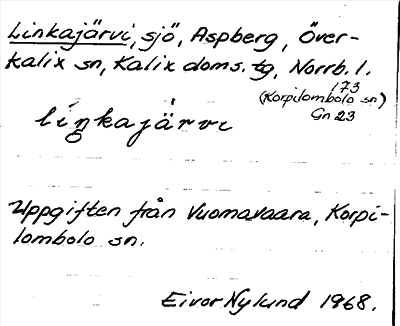 Linkajärvi, sjö, Aspberg, Över-
kalix sn, Kalix doms. tg, Norrb. l.
173
(Korpilombolo sn)
Gn 23
liŋkajärvi
Uppgiften från Vuomavaara, Korpi-
lombolo sn.
Eivor Nylund 1968.